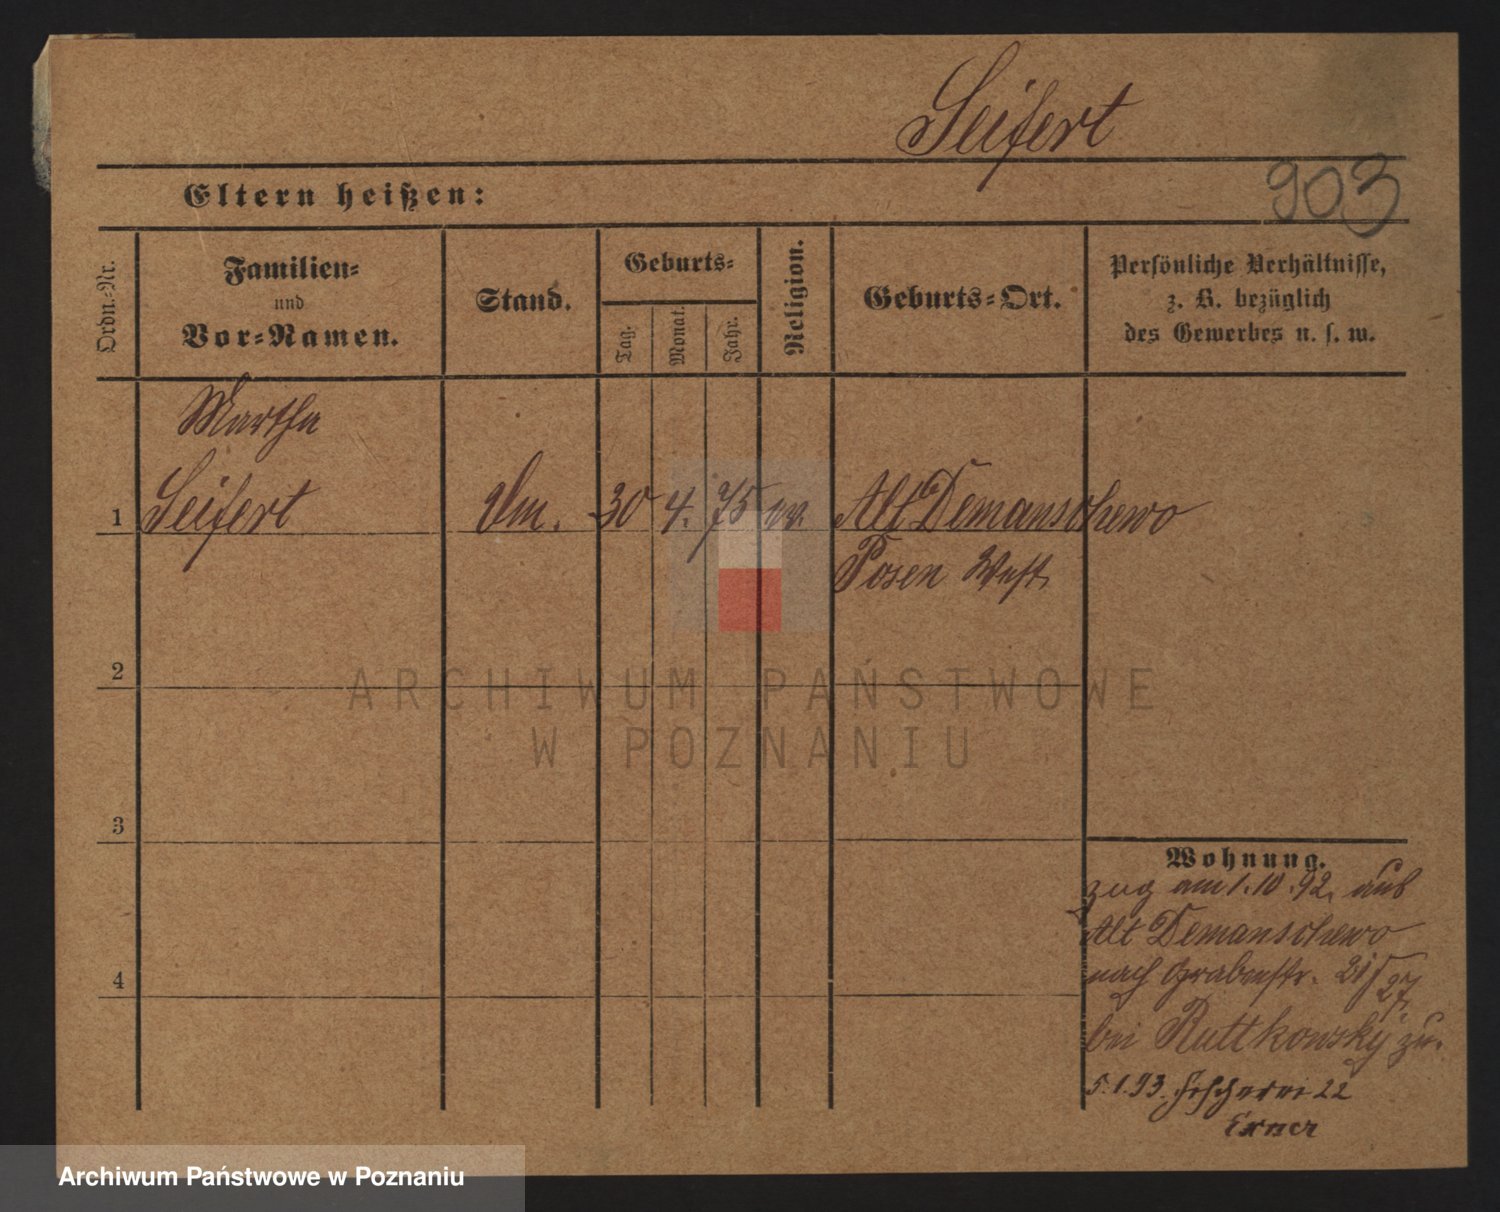 Seifert
903
Eltern heißen:
Ordn.-Nr.
Familien-
und
Vor-Namen.
Stand.
Geburts-
Tag.
Monat.
Jahr.
Religion.
Geburts-Ort.
Persönliche Verhältnisse,
z. B. bezüglich
des Gewerbes u. s. w.
Martha
1 Seifert 30 4. 75 ev. Alt Demanschewo
Posen West
2
3
4
Wohnung.
zug am 1.10.92. aus
Alt Demanschewo
nach Grabenstr. 21/27
bei Ruttkowsky zu.
5.1.93. Fischerei 22
Exner
ARCHIWUM PAŃSTWOWE
W POZNANIU
Archiwum Państwowe w Poznaniu